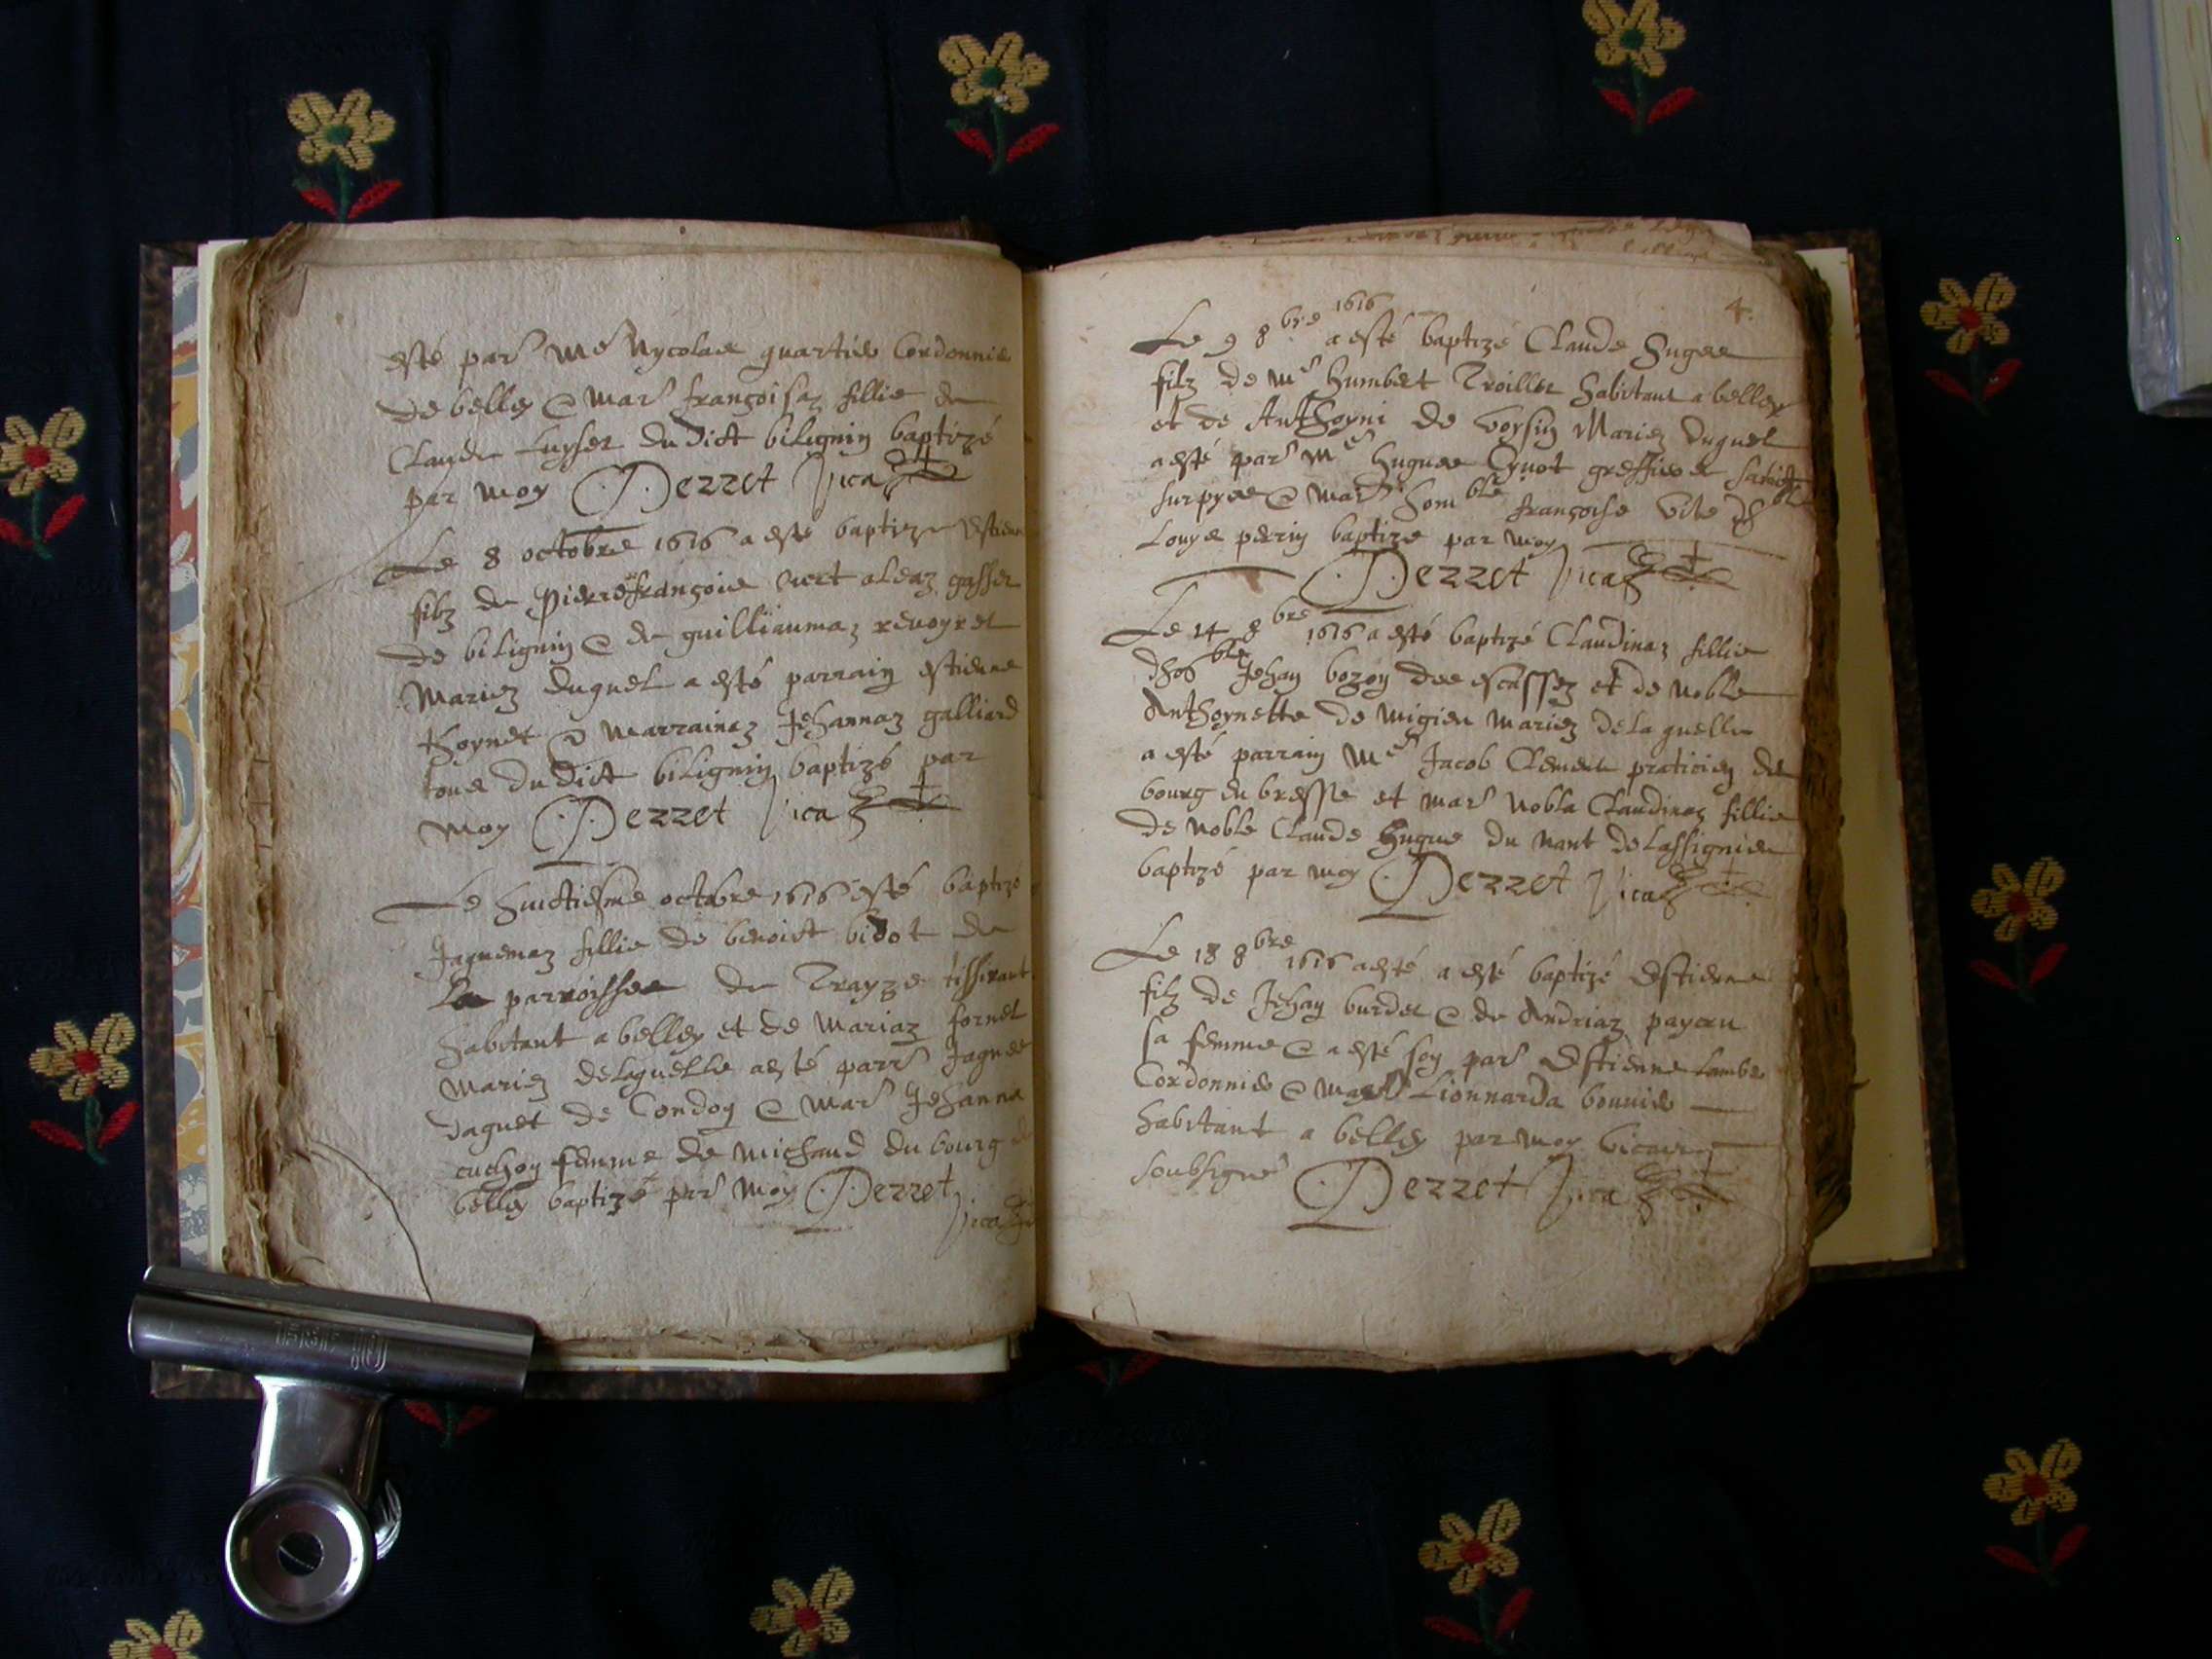 esté par. Me Nycolas quartier Cordonnier
de belley & mar. françoisaz fillie de
Claude Luyset du dict bilignin baptizé
par moy Dezzet Vicaire
Le 8 octobre 1616 a esté baptize Estienne
filz de Pierre françois
de bilignin & de guilliaumaz revoyret
Mariez duquel a esté parrain estienne
thoynet & Marrainez Jehannaz galliard
tous du dict bilignin baptizé par
moy Dezzet Vicaire
Le huictiesme octobre 1616 esté baptizé
Jaquemaz fillie de benoict bidot de
La parroisse de Trayze tissirant
habitant a belley et de Mariaz fornet
Mariez delaquelle a esté parr. Jaques
daguet de Condoy & Mar. Jehanna
cuchoy femme de michaud du bourg de
belley baptizé par moy Dezzet
Vicaire
4.
Le 9 8bre 1616 a esté baptizé Claude Hugues
filz de Me humbert Troillet habitant a belley
et de Anthoyni de Voysin Mariez duquel
a esté par. Me hugues greffier
surpyes & Mar. hom ble françoise
Louys perrin baptize par moy
Dezzet Vicaire
Le 14 8bre 1616 a esté baptizé Claudinaz fillie
Jehan bozon des escassez et de Noble
Anthoynette de Migieu Mariez de la quelle
a esté parrain Me Jacob Clement praticien de
bourg en bresse et mar. Nobla Claudinaz fillie
de Noble Claude hugues du Nant de Lassignieu
baptizé par moy Dezzet Vicaire
Le 18 8bre 1616 a esté a esté baptizé Estienne
filz de Jehan burdet & de Andriaz payen
sa femme & a esté son par. Estienne Lambert
Cordonnier & Mar. Lionnarda bouvier
habitant a belley par moy vicaire
soubsigné Dezzet Vicaire